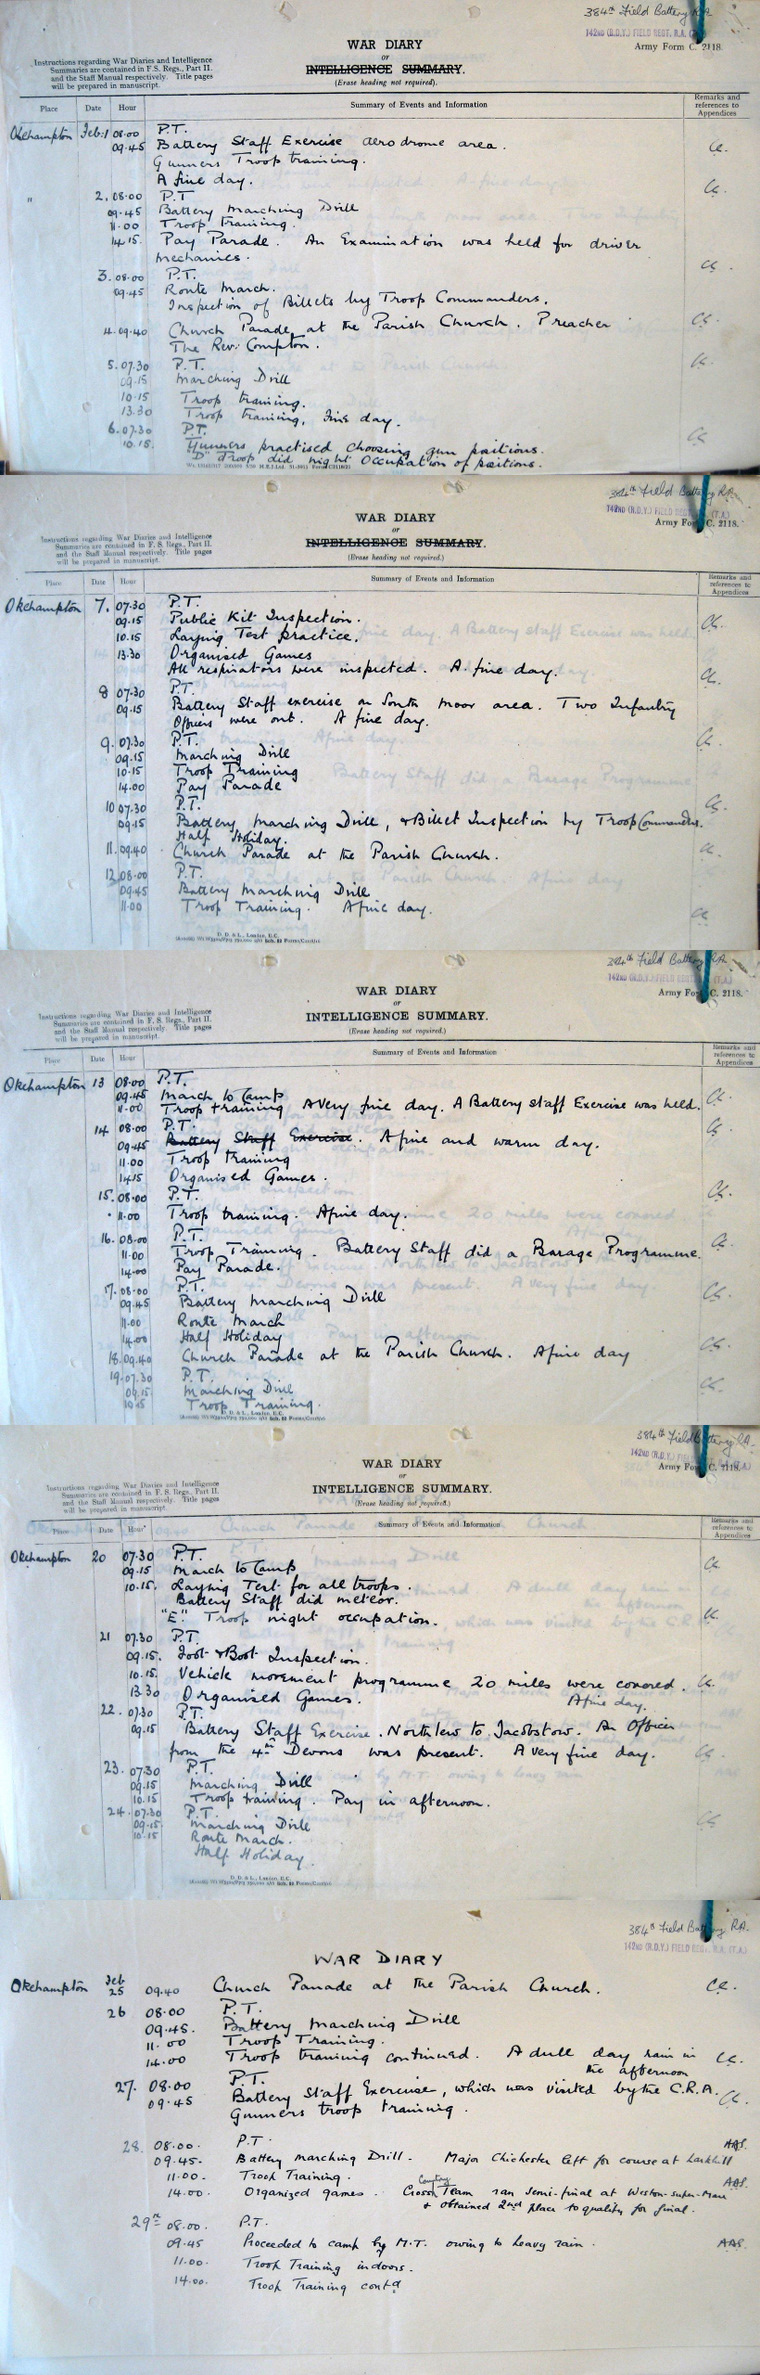 384th Field Battery R.A.
142ND (R.D.Y.) FIELD REGT. R.A. (T.A.)
Army Form C. 2118.
WAR DIARY
or
INTELLIGENCE SUMMARY.
(Erase heading not required).
Instructions regarding War Diaries and Intelligence
Summaries are contained in F.S. Regs., Part II.
and the Staff Manual respectively. Title pages
will be prepared in manuscript.
Place Date Hour Summary of Events and Information Remarks and references to Appendices
Okehampton Feb: 1 08.00 P.T.
09.45 Battery Staff Exercise aerodrome area.
Gunners Troop training.
A fine day.
" 2. 08.00 P.T
09.45 Battery Marching Drill
11.00 Troop training.
14.15. Pay Parade. An Examination was held for driver
mechanics.
3. 08.00 P.T.
09.45 Route March.
Inspection of Billets by Troop Commanders.
4. 09.40 Church Parade at the Parish Church. Preacher
The Rev: Compton.
5. 07.30 P.T.
09.15 Marching Drill
10.15 Troop training.
13.30 Troop training, Fine day.
6. 07.30 P.T.
10.15. Gunners practised choosing gun positions.
"D" Troop did night Occupation of positions.
384th Field Battery RA.
142ND (R.D.Y.) FIELD REGT. R.A. (T.A.)
Army Form C. 2118.
WAR DIARY
or
INTELLIGENCE SUMMARY.
(Erase heading not required.)
Instructions regarding War Diaries and Intelligence
Summaries are contained in F. S. Regs., Part II.
and the Staff Manual respectively. Title pages
will be prepared in manuscript.
Place Date Hour Summary of Events and Information Remarks and references to Appendices
Okehampton 7. 07.30 P.T.
09.15 Public Kit Inspection.
10.15 Laying Test practice.
13.30 Organised Games
All respirators were inspected. A fine day.
8 07.30 P.T.
09.15 Battery Staff exercise on South Moor area. Two Infantry
Officers were out. A fine day.
9. 07.30 P.T.
09.15 Marching Drill
10.15 Troop Training
14.00 Pay Parade
10 07.30 P.T.
09.15 Battery Marching Drill, & Billet Inspection by Troop Commanders.
Half Holiday.
11. 09.40 Church Parade at the Parish Church.
12. 08.00 P.T.
09.45 Battery Marching Drill
11.00 Troop Training. A fine day.
D. D. & L., London, E.C.
384th Field Battery RA.
142ND (R.D.Y.) FIELD REGT. R.A. (T.A.)
Army Form C. 2118.
WAR DIARY
or
INTELLIGENCE SUMMARY.
(Erase heading not required.)
Instructions regarding War Diaries and Intelligence
Summaries are contained in F. S. Regs., Part II.
and the Staff Manual respectively. Title pages
will be prepared in manuscript.
Place Date Hour Summary of Events and Information Remarks and references to Appendices
Okehampton 13 08.00 P.T.
09.45 March to Camp
11.00 Troop training A very fine day. A Battery Staff Exercise was held.
14 08.00 P.T.
09.45 Battery Staff Exercise. A fine and warm day.
11.00 Troop training
14.15 Organised Games.
15. 08.00 P.T.
11.00 Troop training. A fine day.
16. 08.00 P.T.
11.00 Troop Training. Battery Staff did a Barage Programme.
14.00 Pay Parade.
17. 08.00 P.T.
09.45 Battery Marching Drill
11.00 Route March
14.00 Half Holiday
18. 09.40 Church Parade at the Parish Church. A fine day
19. 07.30 P.T.
09.15 Marching Drill
10.15 Troop Training.
D. D. & L., London, E.C.
384th Field Battery RA.
142ND (R.D.Y.) FIELD REGT. R.A. (T.A.)
Army Form C. 2118.
WAR DIARY
or
INTELLIGENCE SUMMARY.
(Erase heading not required.)
Instructions regarding War Diaries and Intelligence
Summaries are contained in F. S. Regs., Part II.
and the Staff Manual respectively. Title pages
will be prepared in manuscript.
Place Date Hour Summary of Events and Information Remarks and references to Appendices
Okehampton 20 07.30 P.T.
09.15 March to Camp
10.15. Laying Test for all troops.
Battery Staff did meteor.
"E" Troop night occupation.
21 07.30 P.T.
09.15. Foot & Boot Inspection.
10.15. Vehicle movement programme 20 miles were covered.
13.30 Organised Games. A fine day.
22. 07.30 P.T.
09.15 Battery Staff Exercise. Northlew to Jacobstow. An Officer
from the 4th Devons was present. A very fine day.
23. 07.30 P.T.
09.15 Marching Drill
10.15 Troop training. Pay in afternoon.
24. 07.30 P.T.
09.15 Marching Drill
10.15 Route March.
Half Holiday.
D. D. & L., London, E.C.
384th Field Battery RA.
142ND (R.D.Y.) FIELD REGT. R.A. (T.A.)
WAR DIARY
Okehampton Feb 25 09.40 Church Parade at the Parish Church.
26 08.00 P.T.
09.45. Battery Marching Drill
11.00 Troop Training.
14.00 Troop training continued. A dull day rain in
the afternoon
27. 08.00 P.T.
09.45 Battery Staff Exercise, which was visited by the C.R.A.
Gunners troop training.
28. 08.00. P.T. AAS.
09.45. Battery marching Drill. Major Chichester left for course at Larkhill
11.00. Troop Training. AAS.
14.00. Organized games. Cross Country Team ran semi-final at Weston-super-Mare
& obtained 2nd place to qualify for final.
29th 08.00. P.T.
09.45 Proceeded to camp by M.T. owing to heavy rain. AAS.
11.00. Troop Training indoors.
14.00. Troop Training contd